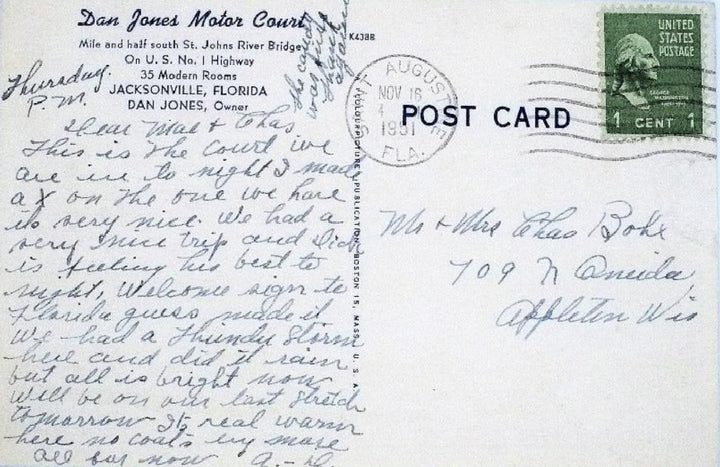 Dan Jones Motor Court
Mile and half south St. Johns River Bridge
On U. S. No. 1 Highway
35 Modern Rooms
JACKSONVILLE, FLORIDA
DAN JONES, Owner
K4388
The candy
was fine
Thank
again
Thursday.
P.M.
Dear Mae & Chas,
This is the court we
are in to night I made
a X on the one we have
its very nice. We had a
very nice trip and Dick
is feeling his best to
night. Welcome sign to
Florida guess made it
We had a Thundy Storm
here and did it rain
but all is bright now
Will be on our last stretch
tomorrow Its real warm
here no coats any more
All for now A.-D.
"COLOURPICTURE" PUBLICATION, BOSTON 15, MASS., U. S. A.
POST CARD
SAINT AUGUSTINE
NOV 16
1951
FLA.
UNITED
STATES
POSTAGE
GEORGE WASHINGTON
1 CENT 1
Mr & Mrs Chas
709 N Oneida
Appleton Wis